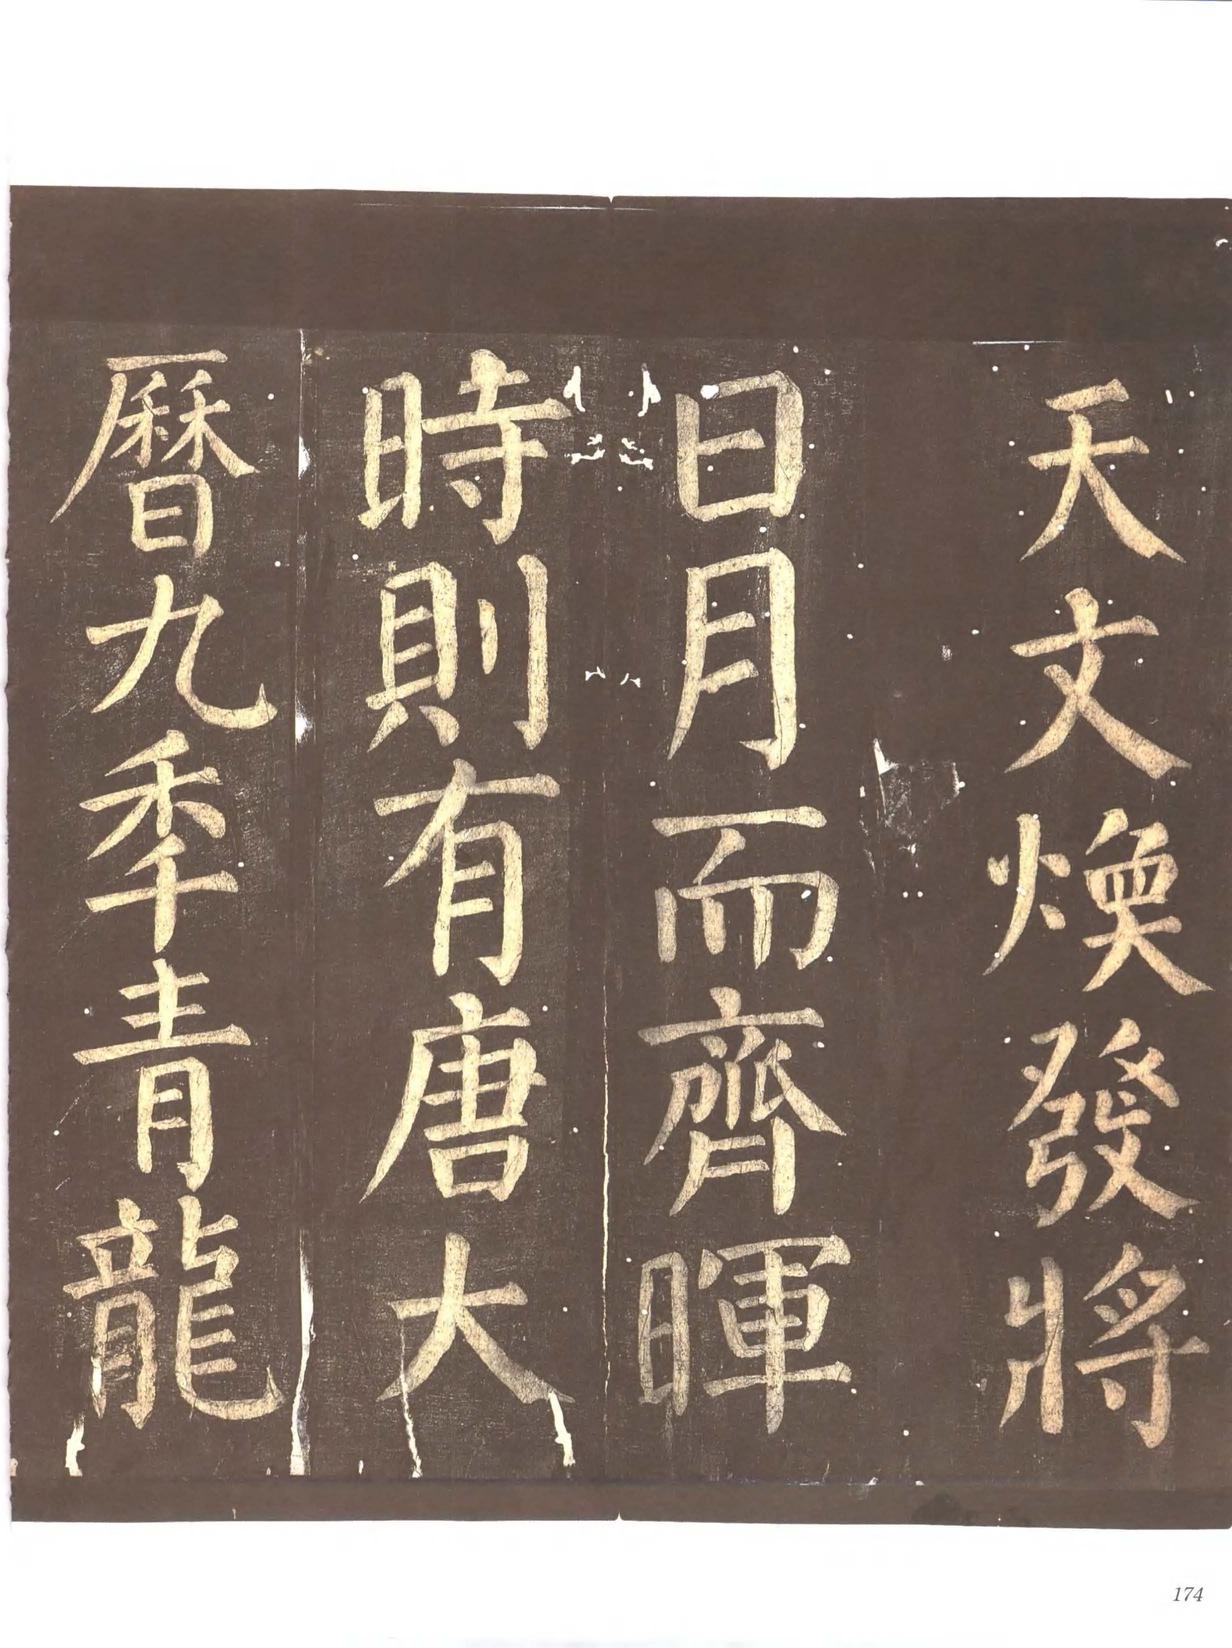 天文煥發將
日月而齊暉
時則有唐大
曆九秊青龍
174